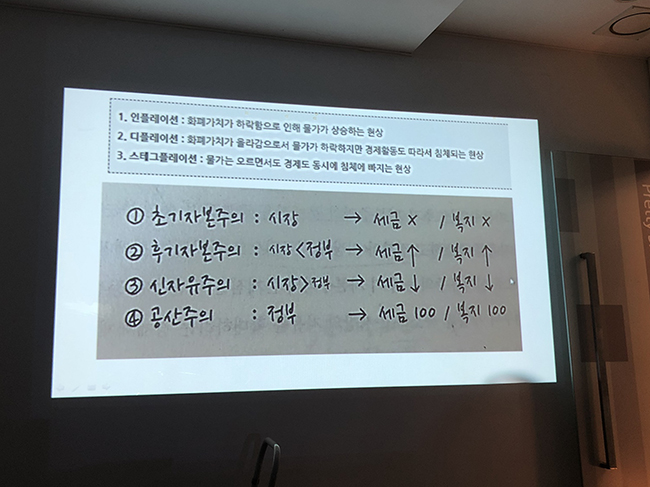 1. 인플레이션 : 화폐가치가 하락함으로 인해 물가가 상승하는 현상
2. 디플레이션 : 화폐가치가 올라감으로서 물가가 하락하지만 경제활동도 따라서 침체되는 현상
3. 스테그플레이션 : 물가는 오르면서도 경제도 동시에 침체에 빠지는 현상
① 초기자본주의 : 시장 → 세금 X / 복지 X
② 후기자본주의 : 시장<정부 → 세금↑ / 복지 ↑
③ 신자유주의 : 시장>정부 → 세금↓ / 복지 ↓
④ 공산주의 : 정부 → 세금 100 / 복지 100